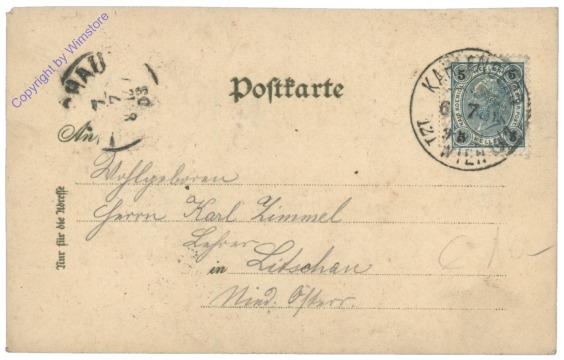 Copyright by Wimstore
Postkarte
An
Wohlgeboren
Herrn Karl Zimmel
Lehrer
in Litschau
Nied. Österr.
Nur für die Adresse
5 5
5 5
6 7
WIEN
7
7
8
03